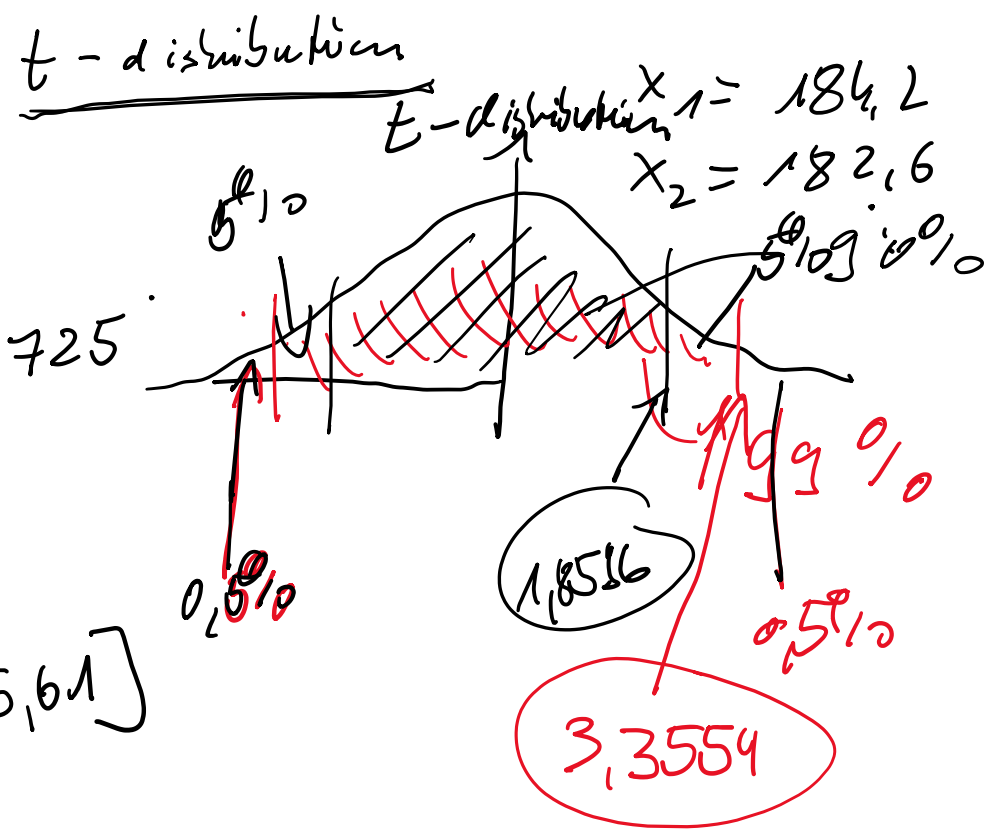 t - distribution
t - distribution
x1 = 184,2
x2 = 182,6
5%
5%
90%
725
99%
0,5%
0,5%
5,61]
3,3554